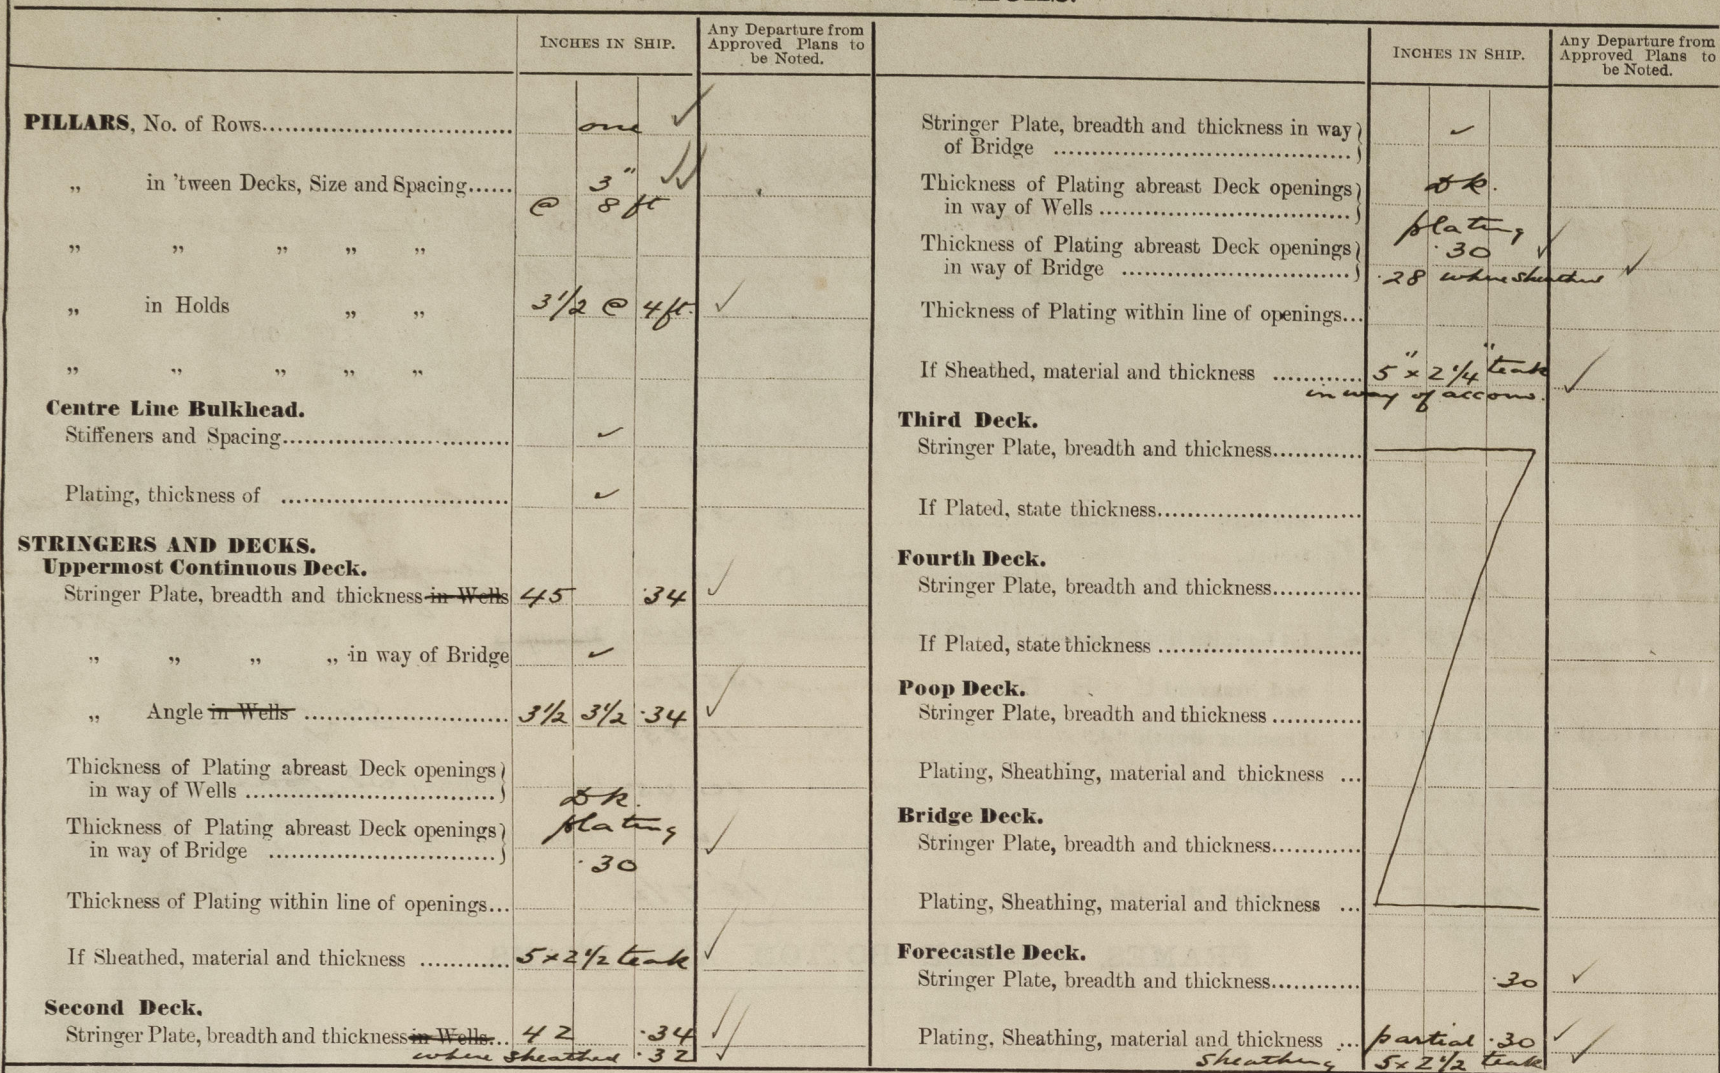 INCHES IN SHIP.
Any Departure from
Approved Plans to
be Noted.
PILLARS, No. of Rows.......... one ✓
„ in 'tween Decks, Size and Spacing...... 3" ✓✓
@ 8 ft
„ „ „ „ „
„ in Holds „ „ 3 1/2 @ 4 ft. ✓
„ „ „ „ „
Centre Line Bulkhead.
Stiffeners and Spacing.......... ✓
Plating, thickness of .......... ✓
STRINGERS AND DECKS.
Uppermost Continuous Deck.
Stringer Plate, breadth and thickness in Wells 45 .34 ✓
„ „ „ „ in way of Bridge ✓
„ Angle in Wells .......... 3 1/2 3 1/2 .34 ✓
Thickness of Plating abreast Deck openings }
in way of Wells .......... } Dk.
Thickness of Plating abreast Deck openings } plating ✓
in way of Bridge .......... } .30
Thickness of Plating within line of openings...
If Sheathed, material and thickness .......... 5 x 2 1/2 teak ✓
Second Deck.
Stringer Plate, breadth and thickness in Wells... 42 .34 ✓
where sheathed .32 ✓
INCHES IN SHIP.
Any Departure from
Approved Plans to
be Noted.
Stringer Plate, breadth and thickness in way } ✓
of Bridge .......... }
Thickness of Plating abreast Deck openings } Dk.
in way of Wells .......... } plating
Thickness of Plating abreast Deck openings } .30 ✓
in way of Bridge .......... } .28 where sheathed ✓
Thickness of Plating within line of openings...
If Sheathed, material and thickness .......... 5" x 2 1/4" teak ✓
in way of accom.
Third Deck.
Stringer Plate, breadth and thickness..........
If Plated, state thickness..........
Fourth Deck.
Stringer Plate, breadth and thickness..........
If Plated, state thickness ..........
Poop Deck.
Stringer Plate, breadth and thickness ..........
Plating, Sheathing, material and thickness ...
Bridge Deck.
Stringer Plate, breadth and thickness..........
Plating, Sheathing, material and thickness ...
Forecastle Deck.
Stringer Plate, breadth and thickness.......... .30 ✓
Plating, Sheathing, material and thickness ... partial .30 ✓
sheathing 5 x 2 1/2 teak ✓